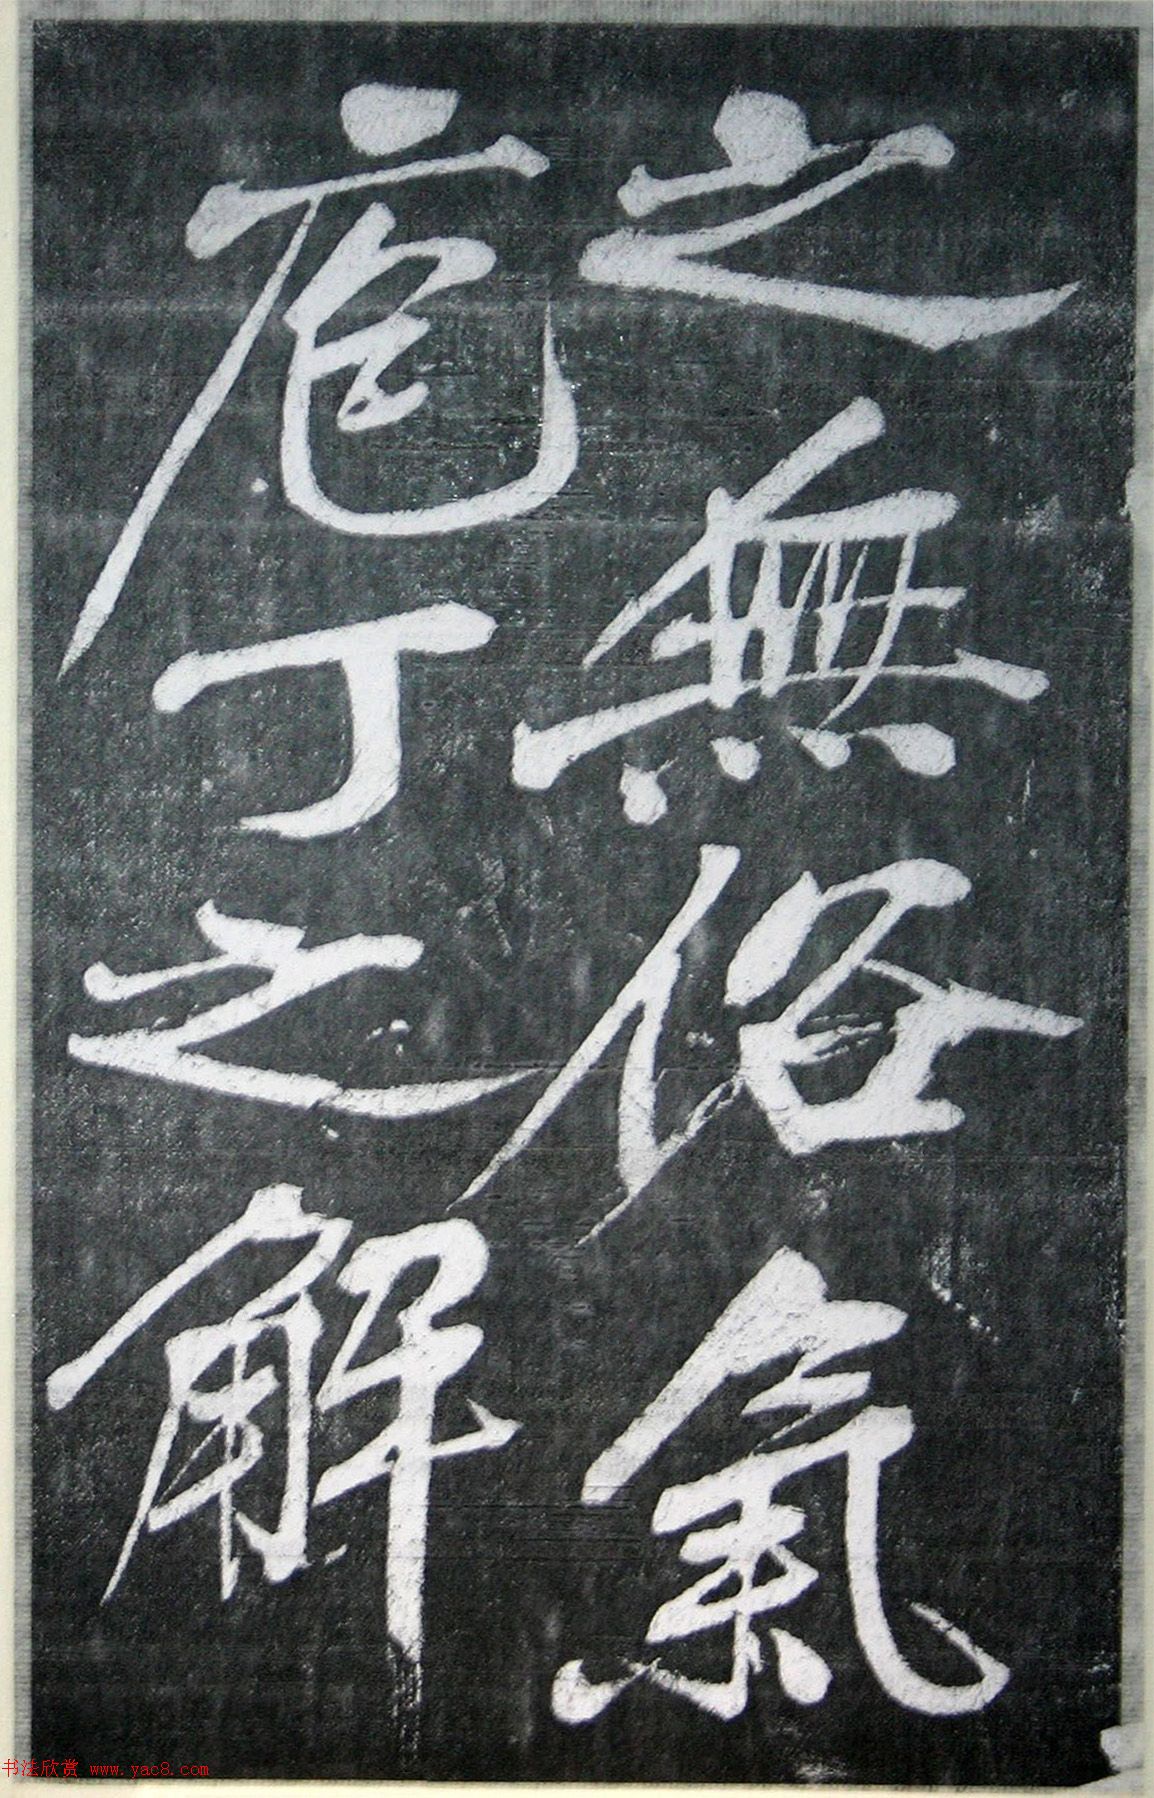 之無俗氣
庖丁之解
书法欣赏 www.yac8.com